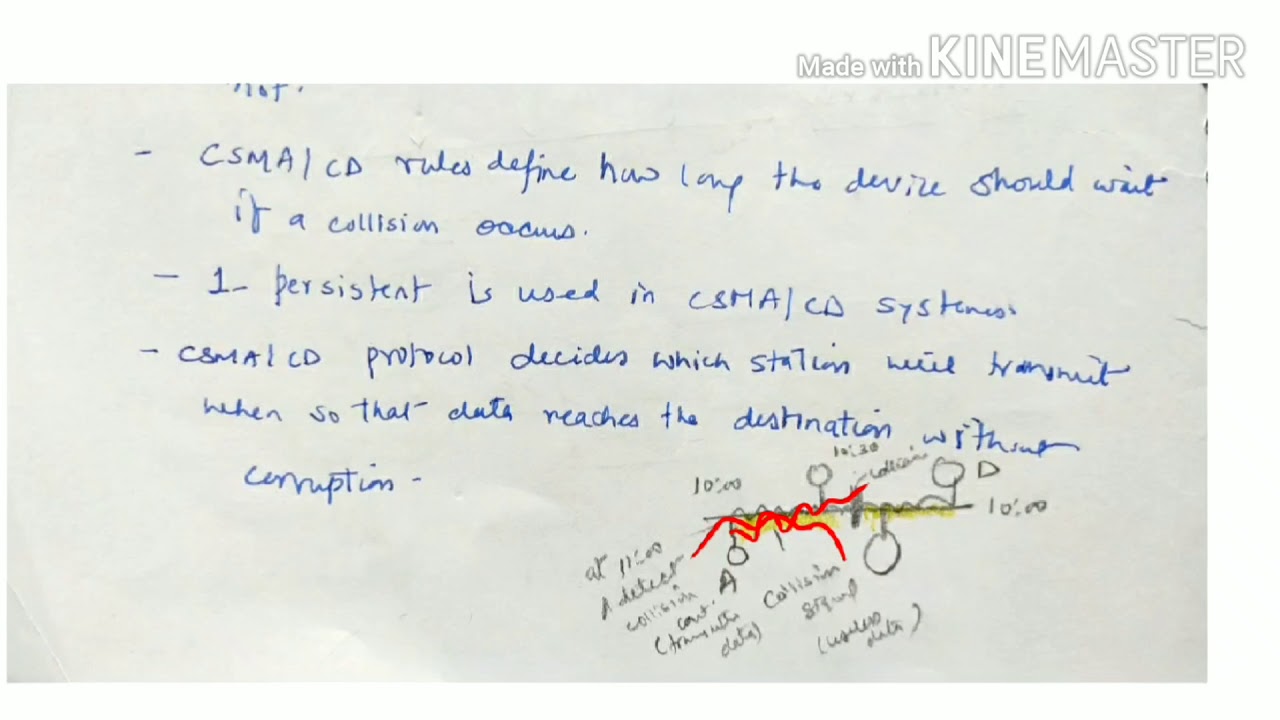 Made with KINEMASTER
not.
- CSMA/CD rules define how long the device should wait
if a collision occurs.
- 1- persistent is used in CSMA/CD systems.
- CSMA/CD protocol decides which station will transmit
when so that data reaches the destination without
corruption -
10:30
collision
10:00
D
10:00
at 11:00
A detect
collision
cont.
(transmits
data)
A
Collision
signal
(useless
data)